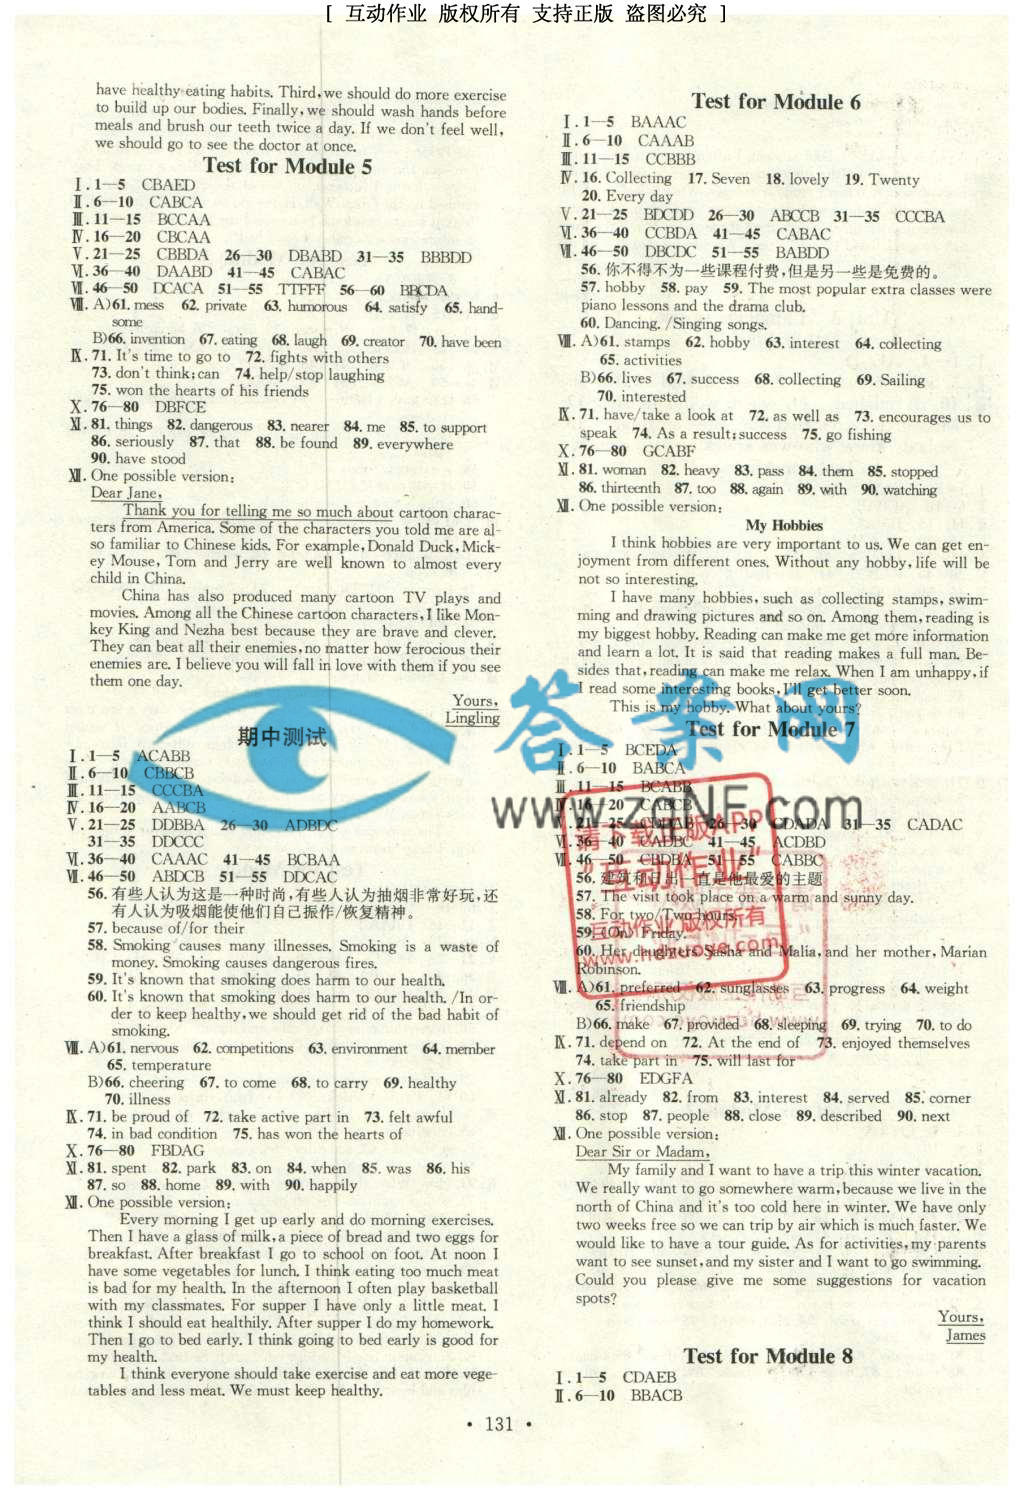 [ 互动作业 版权所有 支持正版 盗图必究 ]
have healthy eating habits. Third, we should do more exercise
to build up our bodies. Finally, we should wash hands before
meals and brush our teeth twice a day. If we don't feel well,
we should go to see the doctor at once.
Test for Module 5
Ⅰ. 1—5 CBAED
Ⅱ. 6—10 CABCA
Ⅲ. 11—15 BCCAA
Ⅳ. 16—20 CBCAA
Ⅴ. 21—25 CBBDA 26—30 DBABD 31—35 BBBDD
Ⅵ. 36—40 DAABD 41—45 CABAC
Ⅶ. 46—50 DCACA 51—55 TTFFF 56—60 BBCDA
Ⅷ. A)61. mess 62. private 63. humorous 64. satisfy 65. hand-
some
B)66. invention 67. eating 68. laugh 69. creator 70. have been
Ⅸ. 71. It's time to go to 72. fights with others
73. don't think; can 74. help/stop laughing
75. won the hearts of his friends
Ⅹ. 76—80 DBFCE
Ⅺ. 81. things 82. dangerous 83. nearer 84. me 85. to support
86. seriously 87. that 88. be found 89. everywhere
90. have stood
Ⅻ. One possible version:
Dear Jane,
Thank you for telling me so much about cartoon charac-
ters from America. Some of the characters you told me are al-
so familiar to Chinese kids. For example, Donald Duck, Mick-
ey Mouse, Tom and Jerry are well known to almost every
child in China.
China has also produced many cartoon TV plays and
movies. Among all the Chinese cartoon characters, I like Mon-
key King and Nezha best because they are brave and clever.
They can beat all their enemies, no matter how ferocious their
enemies are. I believe you will fall in love with them if you see
them one day.
Yours,
Lingling
期中测试
Ⅰ. 1—5 ACABB
Ⅱ. 6—10 CBBCB
Ⅲ. 11—15 CCCBA
Ⅳ. 16—20 AABCB
Ⅴ. 21—25 DDBBA 26—30 ADBDC
31—35 DDCCC
Ⅵ. 36—40 CAAAC 41—45 BCBAA
Ⅶ. 46—50 ABDCB 51—55 DDCAC
56. 有些人认为这是一种时尚,有些人认为抽烟非常好玩,还
有人认为吸烟能使他们自己振作/恢复精神。
57. because of/for their
58. Smoking causes many illnesses. Smoking is a waste of
money. Smoking causes dangerous fires.
59. It's known that smoking does harm to our health.
60. It's known that smoking does harm to our health. /In or-
der to keep healthy, we should get rid of the bad habit of
smoking.
Ⅷ. A)61. nervous 62. competitions 63. environment 64. member
65. temperature
B)66. cheering 67. to come 68. to carry 69. healthy
70. illness
Ⅸ. 71. be proud of 72. take active part in 73. felt awful
74. in bad condition 75. has won the hearts of
Ⅹ. 76—80 FBDAG
Ⅺ. 81. spent 82. park 83. on 84. when 85. was 86. his
87. so 88. home 89. with 90. happily
Ⅻ. One possible version:
Every morning I get up early and do morning exercises.
Then I have a glass of milk, a piece of bread and two eggs for
breakfast. After breakfast I go to school on foot. At noon I
have some vegetables for lunch. I think eating too much meat
is bad for my health. In the afternoon I often play basketball
with my classmates. For supper I have only a little meat. I
think I should eat healthily. After supper I do my homework.
Then I go to bed early. I think going to bed early is good for
my health.
I think everyone should take exercise and eat more vege-
tables and less meat. We must keep healthy.
Test for Module 6
Ⅰ. 1—5 BAAAC
Ⅱ. 6—10 CAAAB
Ⅲ. 11—15 CCBBB
Ⅳ. 16. Collecting 17. Seven 18. lovely 19. Twenty
20. Every day
Ⅴ. 21—25 BDCDD 26—30 ABCCB 31—35 CCCBA
Ⅵ. 36—40 CCBDA 41—45 CABAC
Ⅶ. 46—50 DBCDC 51—55 BABDD
56. 你不得不为一些课程付费,但是另一些是免费的。
57. hobby 58. pay 59. The most popular extra classes were
piano lessons and the drama club.
60. Dancing. /Singing songs.
Ⅷ. A)61. stamps 62. hobby 63. interest 64. collecting
65. activities
B)66. lives 67. success 68. collecting 69. Sailing
70. interested
Ⅸ. 71. have/take a look at 72. as well as 73. encourages us to
speak 74. As a result; success 75. go fishing
Ⅹ. 76—80 GCABF
Ⅺ. 81. woman 82. heavy 83. pass 84. them 85. stopped
86. thirteenth 87. too 88. again 89. with 90. watching
Ⅻ. One possible version:
My Hobbies
I think hobbies are very important to us. We can get en-
joyment from different ones. Without any hobby, life will be
not so interesting.
I have many hobbies, such as collecting stamps, swim-
ming and drawing pictures and so on. Among them, reading is
my biggest hobby. Reading can make me get more information
and learn a lot. It is said that reading makes a full man. Be-
sides that, reading can make me relax. When I am unhappy, if
I read some interesting books, I'll get better soon.
This is my hobby. What about yours?
Test for Module 7
Ⅰ. 1—5 BCEDA
Ⅱ. 6—10 BABCA
Ⅲ. 11—15 BCABB
Ⅳ. 16—20 CABCB
Ⅴ. 21—25 26—30 CDADA 31—35 CADAC
Ⅵ. 36—40 CADBC 41—45 ACDBD
Ⅶ. 46—50 CBDBA 51—55 CABBC
56. 建筑和日出一直是他最爱的主题
57. The visit took place on a warm and sunny day.
58. For two/Two hours.
59. (On) Friday.
60. Her daughters Sasha and Malia, and her mother, Marian
Robinson.
Ⅷ. A)61. preferred 62. sunglasses 63. progress 64. weight
65. friendship
B)66. make 67. provided 68. sleeping 69. trying 70. to do
Ⅸ. 71. depend on 72. At the end of 73. enjoyed themselves
74. take part in 75. will last for
Ⅹ. 76—80 EDGFA
Ⅺ. 81. already 82. from 83. interest 84. served 85. corner
86. stop 87. people 88. close 89. described 90. next
Ⅻ. One possible version:
Dear Sir or Madam,
My family and I want to have a trip this winter vacation.
We really want to go somewhere warm, because we live in the
north of China and it's too cold here in winter. We have only
two weeks free so we can trip by air which is much faster. We
would like to have a tour guide. As for activities, my parents
want to see sunset, and my sister and I want to go swimming.
Could you please give me some suggestions for vacation
spots?
Yours,
James
Test for Module 8
Ⅰ. 1—5 CDAEB
Ⅱ. 6—10 BBACB
答案网
www.zqNF.com
请下载正版APP
"互动作业"
互动作业 版权所有
www.hdzuoye.com
• 131 •